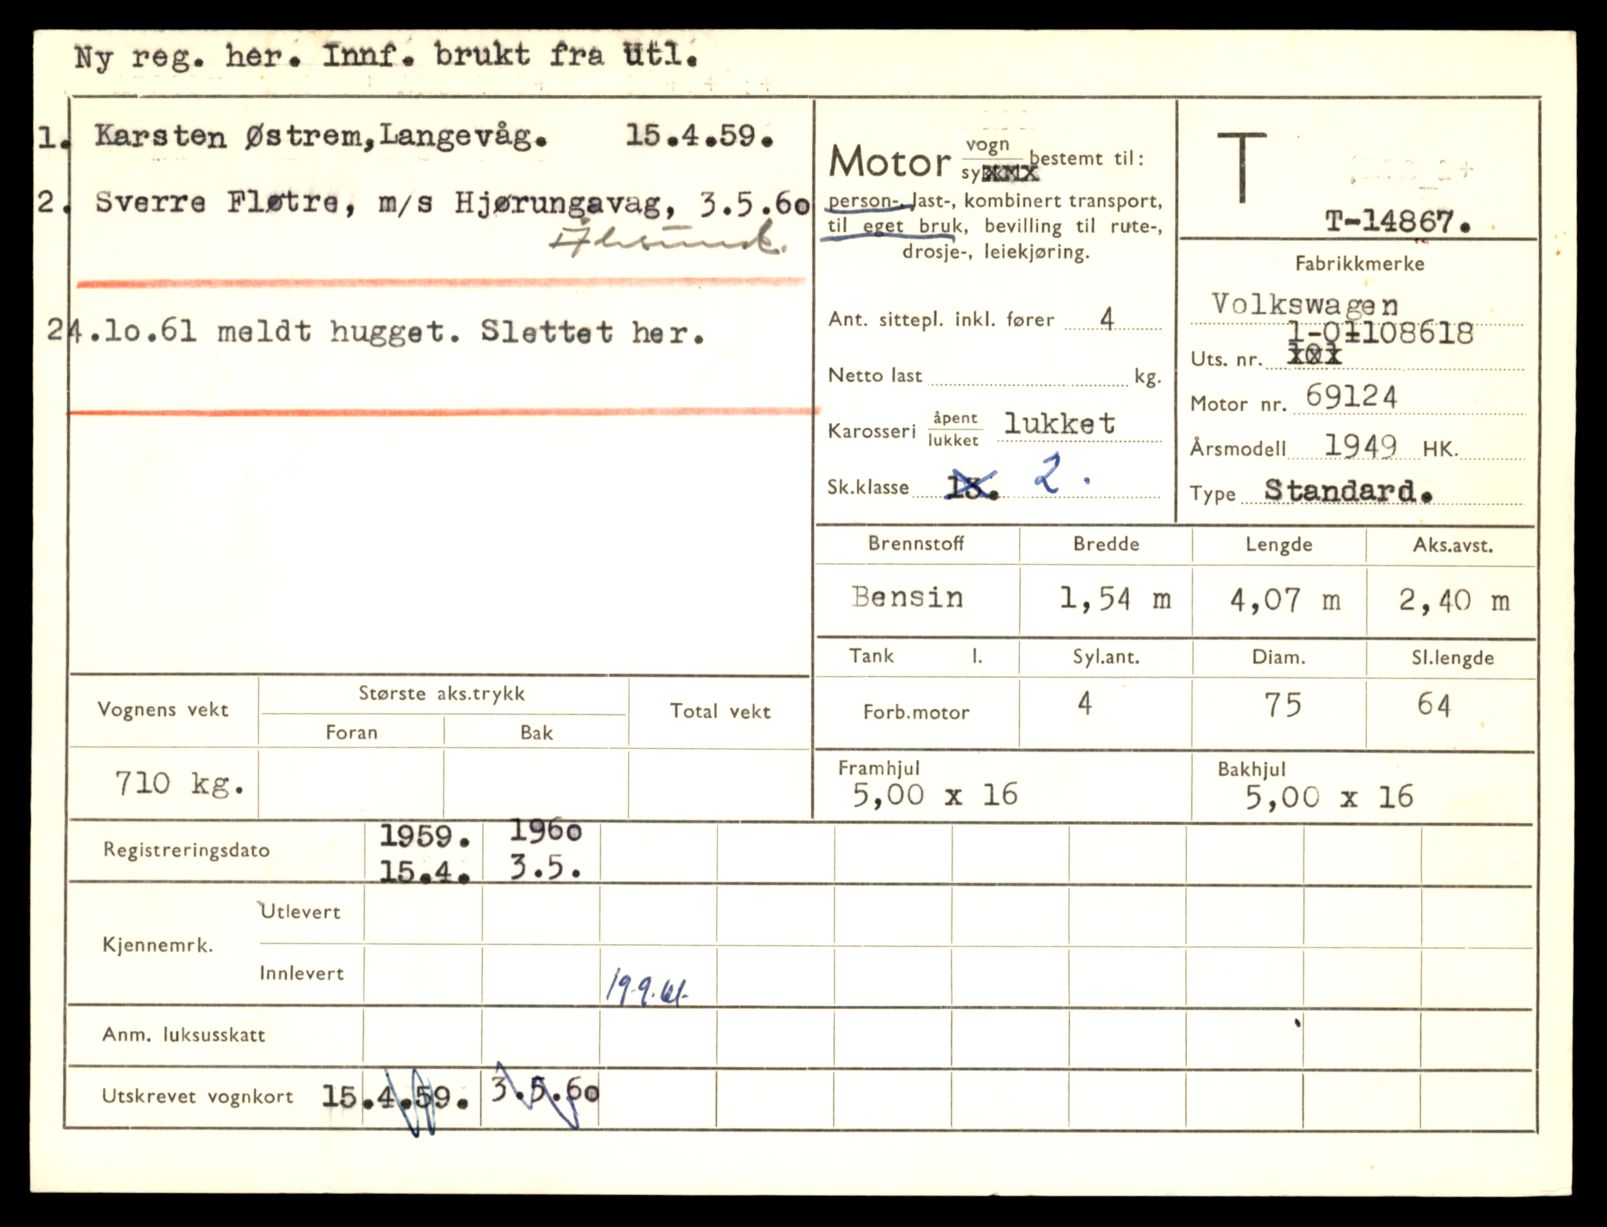 Ny reg. her. Innf. brukt fra Utl.
1. Karsten Østrem,Langevåg. 15.4.59.
2. Sverre Fløtre, m/s Hjørungavag, 3.5.60
Ålesund.
24.10.61 meldt hugget. Slettet her.
Motor vogn
sykkel bestemt til:
person-, last-, kombinert transport,
til eget bruk, bevilling til rute-,
drosje-, leiekjøring.
Ant. sittepl. inkl. fører 4
Netto last kg.
Karosseri åpent
lukket lukket
Sk.klasse 13. 2.
T
T-14867.
Fabrikkmerke
Volkswagen
1-0108618
Uts. nr. xox
Motor nr. 69124
Årsmodell 1949 HK.
Type Standard.
Brennstoff Bredde Lengde Aks.avst.
Bensin 1,54 m 4,07 m 2,40 m
Tank l. Syl.ant. Diam. Sl.lengde
Forb.motor 4 75 64
Framhjul Bakhjul
5,00 x 16 5,00 x 16
Vognens vekt Største aks.trykk Total vekt
Foran Bak
710 kg.
Registreringsdato 1959. 1960
15.4. 3.5.
Kjennemrk. Utlevert
Innlevert 19.9.61.
Anm. luksusskatt
Utskrevet vognkort 15.4.59. 3.5.60